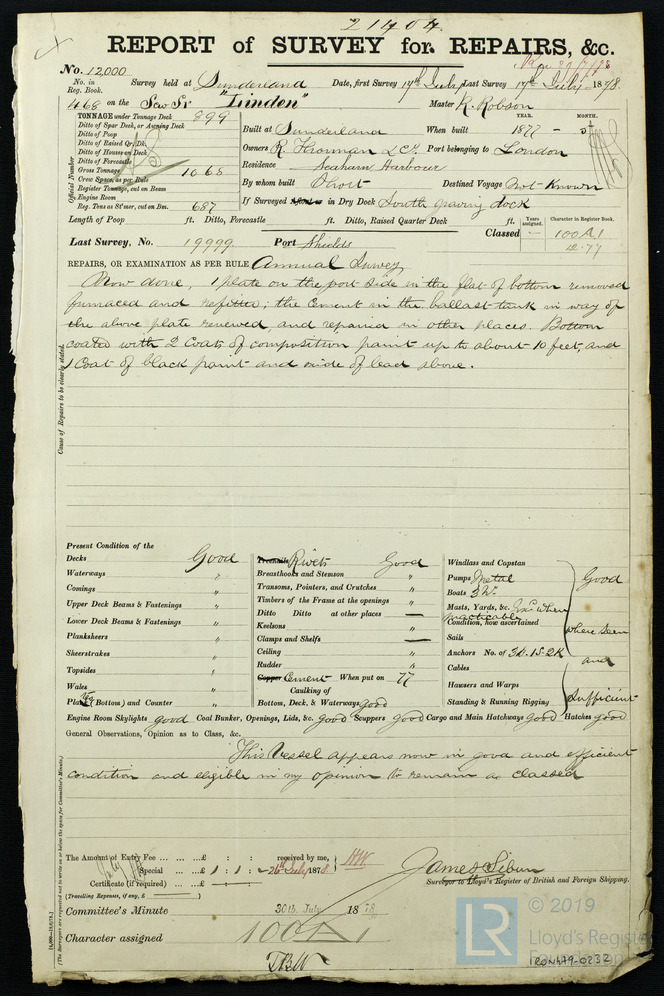 21404
REPORT of SURVEY for REPAIRS, &c.
No. 12,000
No. in Reg. Book. Survey held at Sunderland Date, first Survey 17th July Last Survey 17th July 1878.
468 on the Scw Sr Master R. Robson
TONNAGE under Tonnage Deck 899
Ditto of Spar Deck, or Awning Deck
Ditto of Poop
Ditto of Raised Qr. Dk.
Ditto of House on Deck
Ditto of Forecastle
Gross Tonnage 1065
Crew Space, as per Rule
Register Tonnage, cut on Beam
Engine Room
Reg. Tons as St'mer, cut on Bm. 687
Official Number
YEAR. MONTH.
Built at Sunderland When built 1877
Owners R. Port belonging to London
Residence Seaham Harbour
By whom built Destined Voyage Not Known
If Surveyed Afloat or in Dry Dock South graving dock
Length of Poop ft. Ditto, Forecastle ft. Ditto, Raised Quarter Deck ft.
Years assigned. Character in Register Book.
Classed — 100A1
12.77
Last Survey, No. 19999 Port Shields
REPAIRS, OR EXAMINATION AS PER RULE Annual Survey
Now done, 1 plate on the port side in the flat of bottom removed
furnaced and refitted; the cement in the ballast tank in way of
the above plate renewed, and repaired in other places. Bottom
coated with 2 coats of composition paint up to about 10 feet, and
1 coat of black paint and oxide of lead above.
Cause of Repairs to be clearly stated.
Present Condition of the
Decks Good
Waterways "
Comings "
Upper Deck Beams & Fastenings "
Lower Deck Beams & Fastenings "
Planksheers "
Sheerstrakes "
Topsides "
Wales "
Plating (Bottom) and Counter "
Treenails Rivets Good
Breasthooks and Stemson "
Transoms, Pointers, and Crutches "
Timbers of the Frame at the openings "
Ditto Ditto at other places —
Keelsons "
Clamps and Shelfs —
Ceiling "
Rudder "
Copper Cement When put on 77
Caulking of
Bottom, Deck, & Waterways good
Windlass and Capstan
Pumps Metal
Boats
Masts, Yards, &c. When practicable
Condition, how ascertained
Sails
Anchors No. of 3B.1S.2K
Cables
Hawsers and Warps
Standing & Running Rigging
Good
where seen
and
Sufficient
Engine Room Skylights good Coal Bunker, Openings, Lids, &c. good Scuppers good Cargo and Main Hatchways Good Hatches good
General Observations, Opinion as to Class, &c.
This Vessel appears now in good and efficient
condition and eligible in my opinion to remain as classed
The Amount of Entry Fee ... ... ... £ : : received by me,
Special ... ... £ 1 : 1 : — 26th July 1878
Certificate (if required) ... £ : :
(Travelling Expenses, if any, £ )
James
Surveyor to Lloyd's Register of British and Foreign Shipping.
Committee's Minute 30th July 1878
Character assigned 100A1
© 2019
LR Lloyd's Register Foundation
IRON479-0232